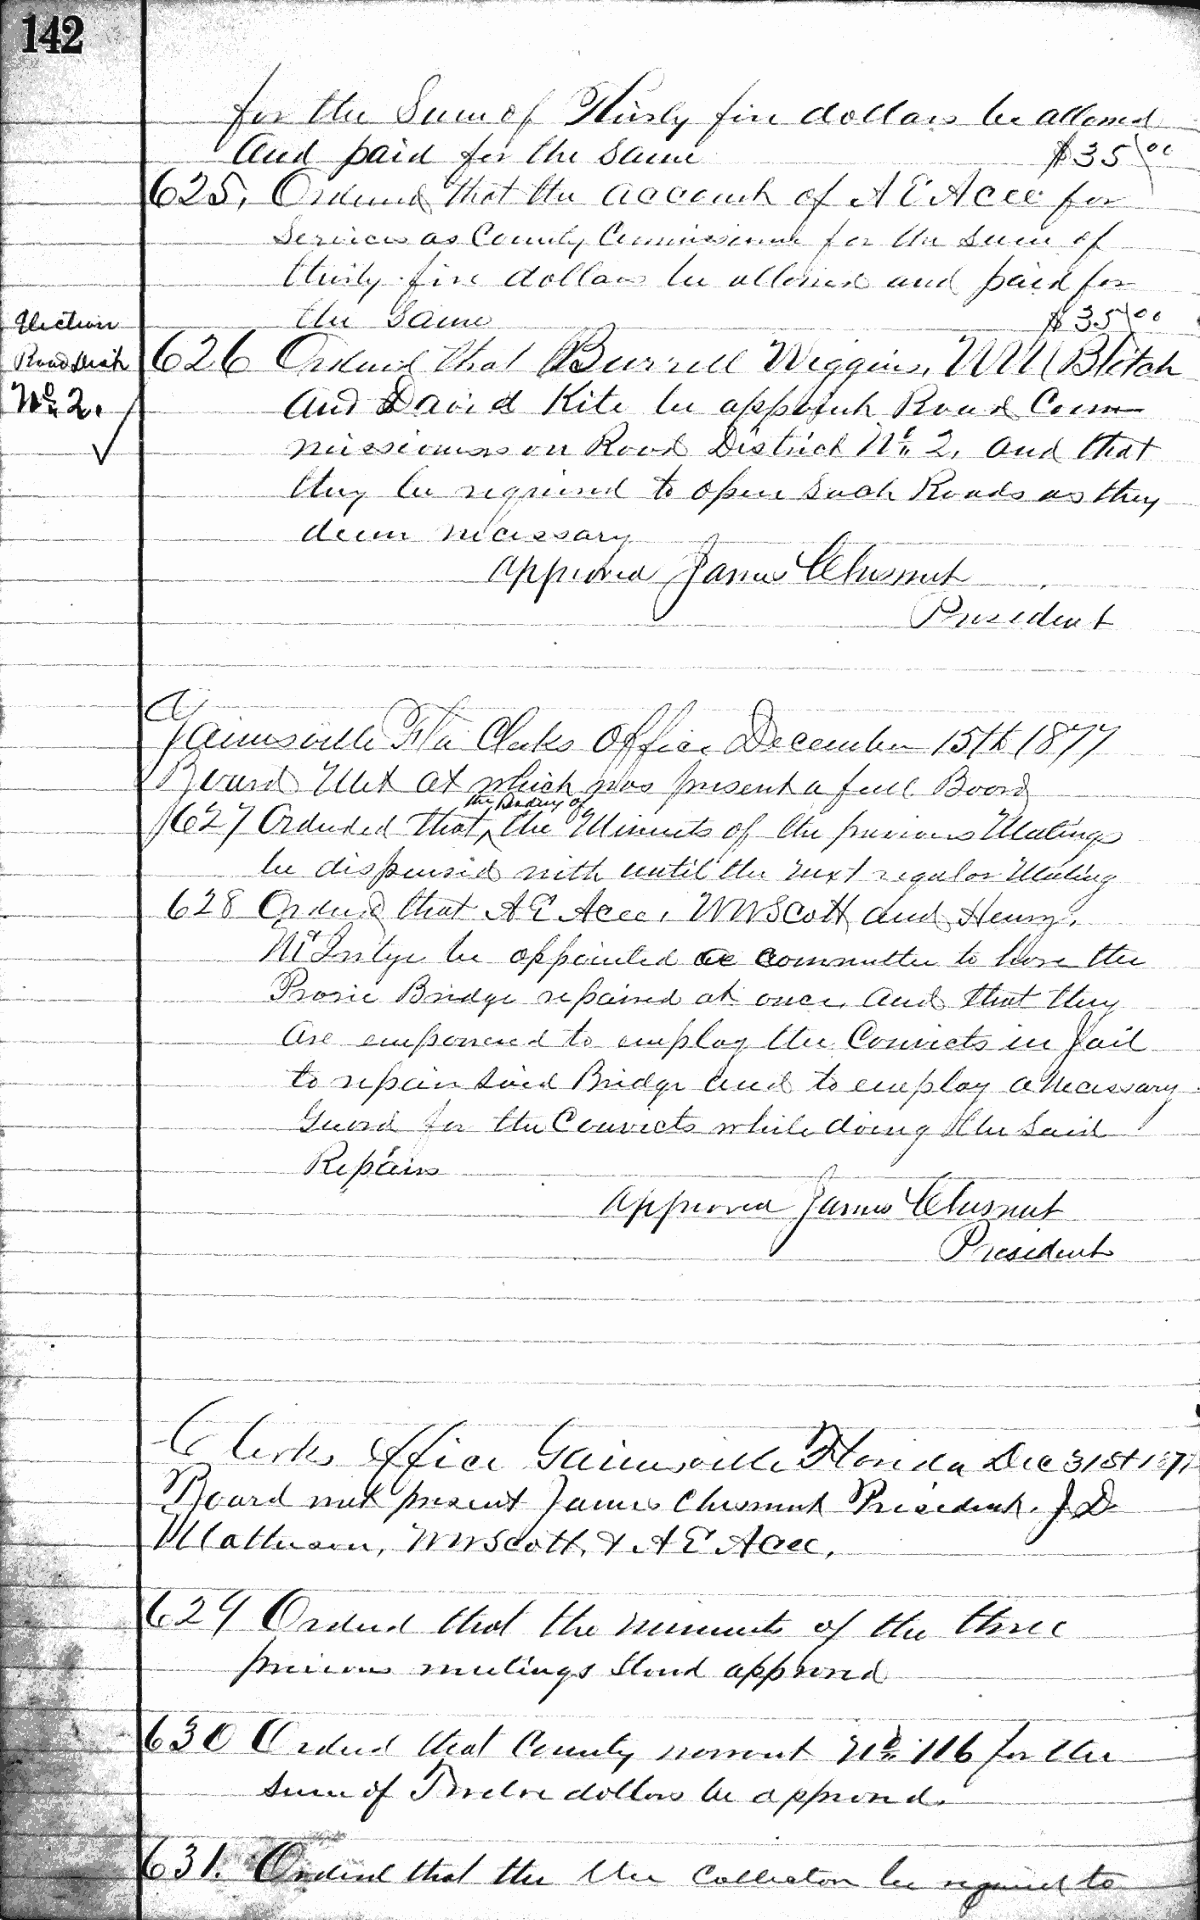 142
for the Sum of Thirty five dollars be allowed
and paid for the Same $35 00
625. Ordered that the account of A E Acee for
Services as County Commissioner for the Sum of
thirty five dollars be allowed and paid for
the Same $35 00
Election
Road Dist
No 2.
626 Ordered that Burrell Wiggins, W W Blitch
and David Kite be appoint Road Com
missioners on Road District No 2, and that
they be required to open Such Roads as they
deem necessary
Approved James Chesnut
President
Gainesville Fla Clerks Office December 15th 1877
Board Met at which was present a full Board
the Reading of
627 Ordered that the Minuets of the previous Meetings
be dispensed with until the next regular Meeting
628 Ordered that A E Acee, W W Scott and Henry
McIntye be appointed a committee to have the
Prarie Bridge repaired at once, and that they
are empowered to employ the Convicts in Jail
to repair Said Bridge and to employ a necessary
Guard for the Convicts while doing the Said
Repairs
Approved James Chesnut
President
Clerks Office Gainesville Florida Dec 31st 1877
Board met present James Chesnut President. J D
Matheson, W W Scott, & A E Acee,
629 Ordered that the minuets of the three
previous meetings Stand approved
630 Ordered that County warrant No 116 for the
Sum of Twelve dollars be approved.
631. Ordered that the Collector be required to